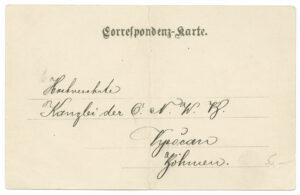 Correspondenz-Karte.
Kanzlei der Ö. N. W. B.
Vysočan
Böhmen.